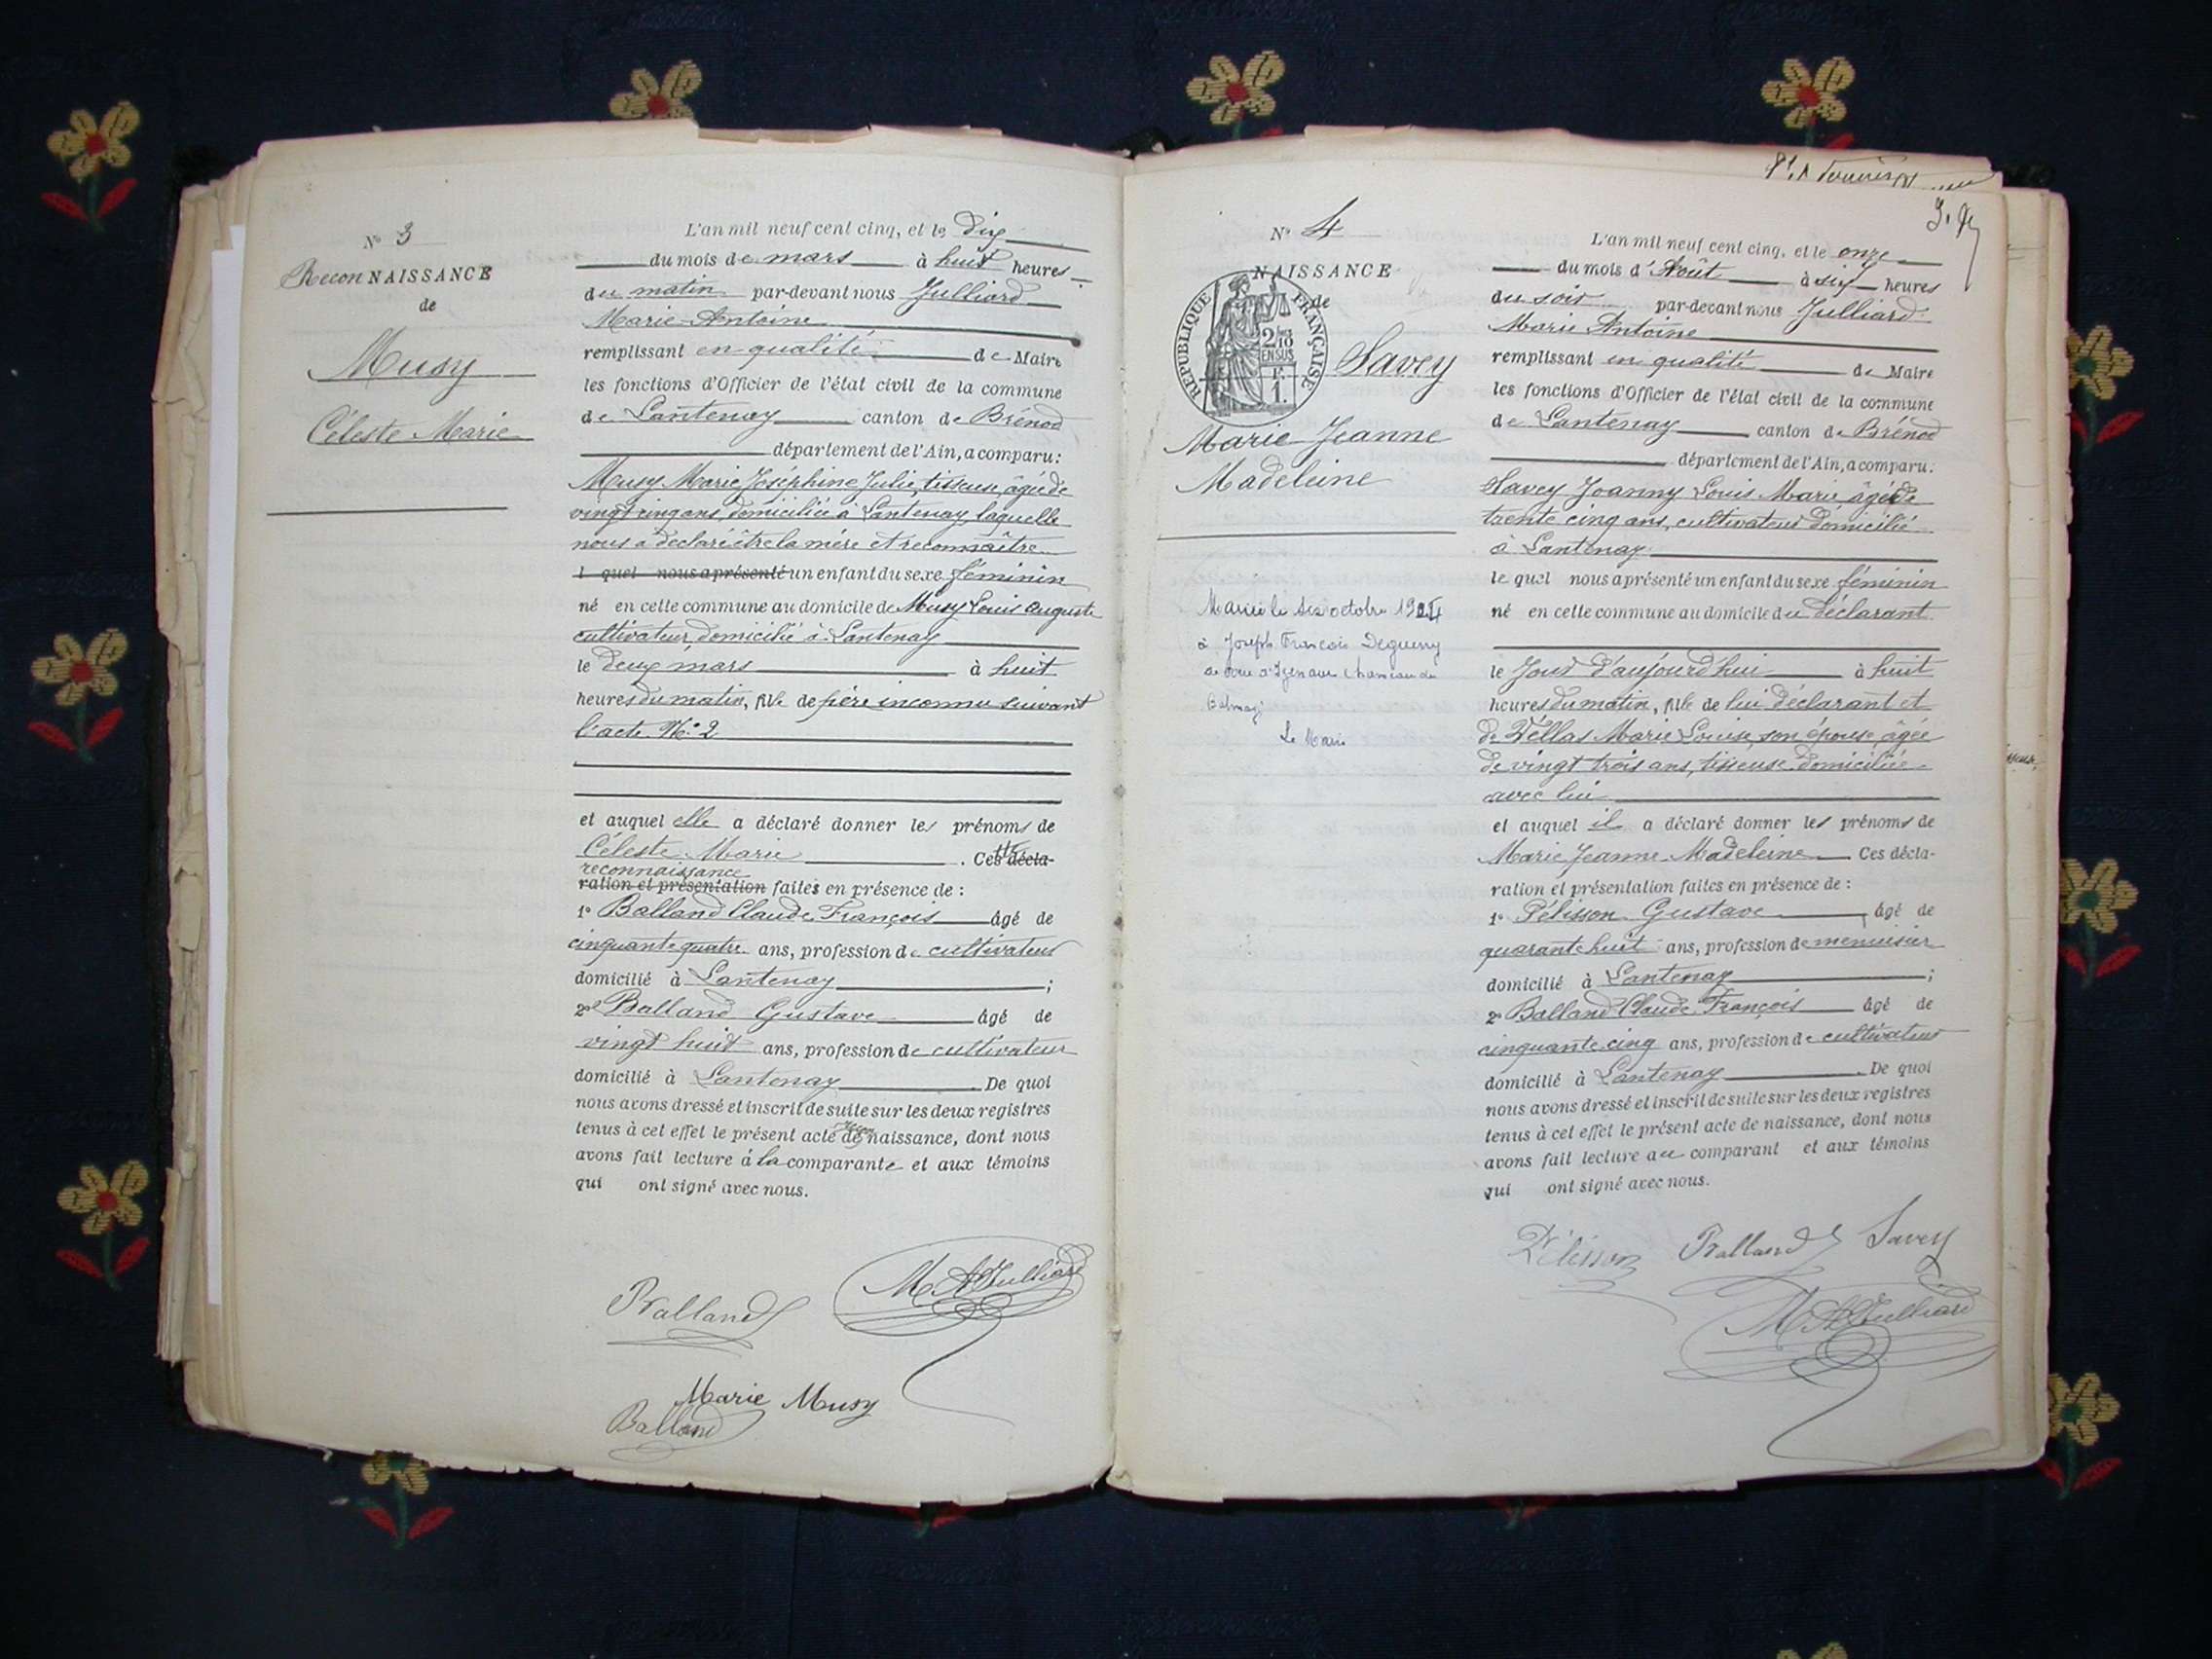 N° 3
Recon NAISSANCE
de
Musy
Céleste Marie
L'an mil neuf cent cinq, et le dix
du mois de mars à huit heures
du matin par-devant nous Julliard
Marie-Antoine
remplissant en qualité de Maire
les fonctions d'Officier de l'état civil de la commune
de Lantenay canton de Brénod
département de l'Ain, a comparu:
Musy Marie Joséphine Julie, tisseuse, âgée de
vingt cinq ans, domiciliée à Lantenay, laquelle
nous a déclaré être la mère et reconnaître
l quel nous a présenté un enfant du sexe féminin
né en cette commune au domicile de Musy Louis Auguste
cultivateur, domicilié à Lantenay
le deux mars à huit
heures du matin, fille de père inconnu suivant
l'acte N° 2
et auquel elle a déclaré donner les prénoms de
Céleste Marie . Cette décla-
reconnaissance
ration et présentation faites en présence de :
1° Balland Claude François âgé de
cinquante quatre ans, profession de cultivateur
domicilié à Lantenay ;
2° Balland Gustave âgé de
vingt huit ans, profession de cultivateur
domicilié à Lantenay De quoi
nous avons dressé et inscrit de suite sur les deux registres
tenus à cet effet le présent acte de Recon naissance, dont nous
avons fait lecture à la comparante et aux témoins
qui ont signé avec nous.
Balland M A Julliard
Marie Musy
Balland
N° 4
NAISSANCE
de
RÉPUBLIQUE FRANÇAISE
2/10
EN SUS
1 F.
Savey
Marie Jeanne
Madeleine
Mariée le six octobre 1924
à Joseph François Deguerry
Le Maire
L'an mil neuf cent cinq, et le onze
du mois d'Août à six heures
du soir par-devant nous Julliard
Marie Antoine
remplissant en qualité de Maire
les fonctions d'Officier de l'état civil de la commune
de Lantenay canton de Brénod
département de l'Ain, a comparu:
Savey Joanny Louis Marie âgé de
trente cinq ans, cultivateur domicilié
à Lantenay
le quel nous a présenté un enfant du sexe féminin
né en cette commune au domicile du déclarant
le jour d'aujourd'hui à huit
heures du matin, fille de lui déclarant et
de Vellas Marie Louise, son épouse, âgée
de vingt trois ans, tisseuse domiciliée
avec lui
et auquel il a déclaré donner les prénoms de
Marie Jeanne Madeleine Ces décla-
ration et présentation faites en présence de :
1° Pélisson Gustave , âgé de
quarante huit ans, profession de menuisier
domicilié à Lantenay ;
2° Balland Claude François âgé de
cinquante cinq ans, profession de cultivateur
domicilié à Lantenay . De quoi
nous avons dressé et inscrit de suite sur les deux registres
tenus à cet effet le présent acte de naissance, dont nous
avons fait lecture au comparant et aux témoins
qui ont signé avec nous.
Pélisson Balland Savey
M A Julliard